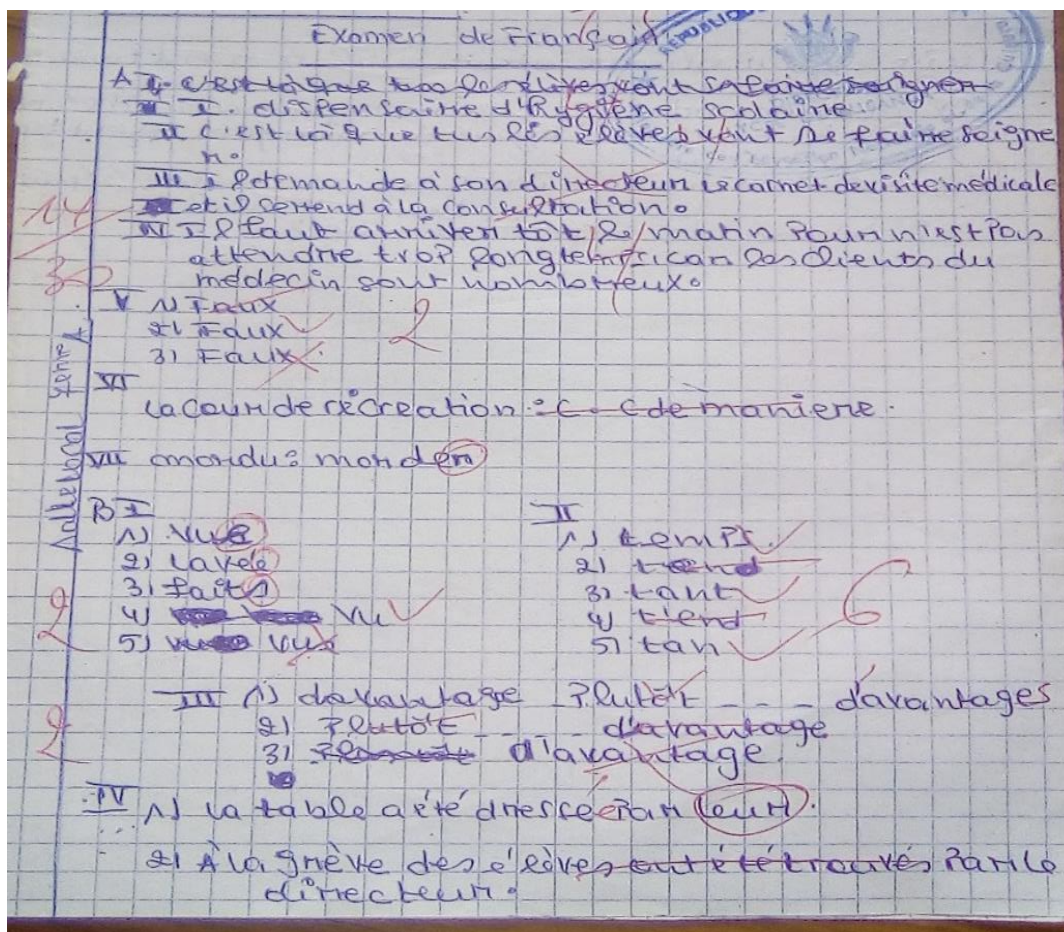 Examen de Français
REPUBLIQUE
A I. c'est là que les élèves vont se faire soigner
I. dispensaire d'Hygiène scolaire.
II c'est là que tus les élèves vont se faire soigne
r.
III Il demande à son directeur le carnet de visite médicale
et il se rend à la consultation.
14
IV Il faut arriver tôt le matin pour n'est pas
attendre trop longtemps car les clients du
3
médecin sont nombreux.
V 1) Faux
2) Faux
2
3) Faux
VI
La cour de récréation : c. c de maniere.
VII mordu : morden
B I
1) vue
2) lavée
3) faits
4) vu
5) vus
2
II
1) temps
2) tend
3) tant
4) tiend
5) tan
6
III 1) davantage Plutôt - - - d'avantages
2) Plutôt - - - d'avantage
3) d'avantage
2
IV 1) La table a été dressée par leur.
2) À la grève des élèves ont été trouvés par le
directeur.